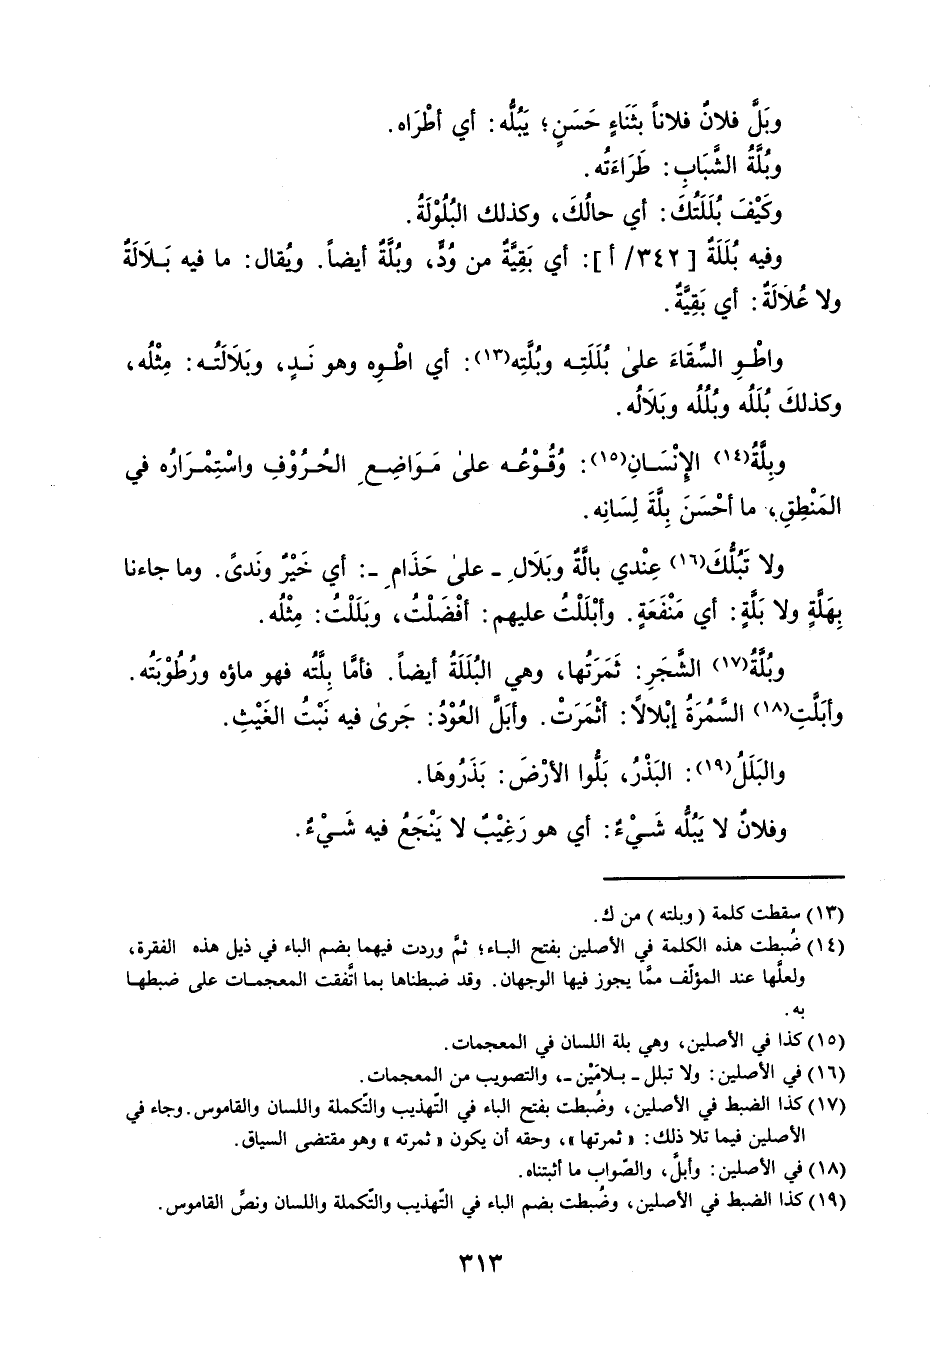 وبَلَّ فلانٌ فلاناً بثَنَاءٍ حَسَنٍ؛ يَبُلُّه: أي أطْرَاه.
وبُلَّةُ الشَّبَابِ: طَرَاءَتُه.
وكَيْفَ بُلَلَتُكَ: أي حالُكَ، وكذلك البُلُولَةُ.
وفيه بُلَلَةٌ [٣٤٢/ أ]: أي بَقِيَّةٌ من وُدٍّ، وبُلَّةٌ أيضاً. ويُقال: ما فيه بَلَالَةٌ
ولا عُلَالَةٌ: أي بَقِيَّةٌ.
واطْوِ السِّقَاءَ علىٰ بُلَلَتِه وبُلَّتِه(١٣): أي اطْوِه وهو نَدٍ، وبَلَالَتُه: مِثْلُه،
وكذلكَ بُلَلُه وبُلُلُه وبَلَالُه.
وبِلَّةُ(١٤) الإِنْسَانِ(١٥): وُقُوْعُه علىٰ مَوَاضِعِ الحُرُوْفِ واسْتِمْرَارُه في
المَنْطِقِ، ما أحْسَنَ بِلَّةَ لِسَانِه.
ولا تَبُلُّكَ(١٦) عِنْدي بالَّةٌ وبَلَالِ ـ علىٰ حَذَامِ ـ: أي خَيْرٌ ونَدىً. وما جاءنا
بِهَلَّةٍ ولا بَلَّةٍ: أي مَنْفَعَةٍ. وأبْلَلْتُ عليهم: أفْضَلْتُ، وبَلَلْتُ: مِثْلُه.
وبُلَّةُ(١٧) الشَّجَرِ: ثَمَرَتُها، وهي البُلَلَةُ أيضاً. فأمَّا بِلَّتُه فهو ماؤه ورُطُوْبَتُه.
وأبَلَّتِ(١٨) السَّمُرَةُ إبْلالاً: أثْمَرَتْ. وأبَلَّ العُوْدُ: جَرىٰ فيه نَبْتُ الغَيْثِ.
والبَلَلُ(١٩): البَذْرُ، بَلُّوا الأرْضَ: بَذَرُوهَا.
وفلانٌ لا يَبُلُّه شَيْءٌ: أي هو رَغِيْبٌ لا يَنْجَعُ فيه شَيْءٌ.
(١٣) سقطت كلمة (وبلته) من ك.
(١٤) ضُبطت هذه الكلمة في الأصلين بفتح الباء؛ ثمَّ وردت فيهما بضم الباء في ذيل هذه الفقرة،
ولعلَّها عند المؤلّف ممَّا يجوز فيها الوجهان. وقد ضبطناها بما اتَّفقت المعجمات على ضبطها
به.
(١٥) كذا في الأصلين، وهي بلة اللسان في المعجمات.
(١٦) في الأصلين: ولا تبلل ـ بلامَيْن ـ، والتصويب من المعجمات.
(١٧) كذا الضبط في الأصلين، وضُبطت بفتح الباء في التّهذيب والتّكملة واللسان والقاموس. وجاء في
الأصلين فيما تلا ذلك: «ثمرتها»، وحقه أن يكون «ثمرته» وهو مقتضى السياق.
(١٨) في الأصلين: وأبلَّ، والصّواب ما أثبتناه.
(١٩) كذا الضبط في الأصلين، وضُبطت بضم الباء في التّهذيب والتّكملة واللسان ونصِّ القاموس.
٣١٣